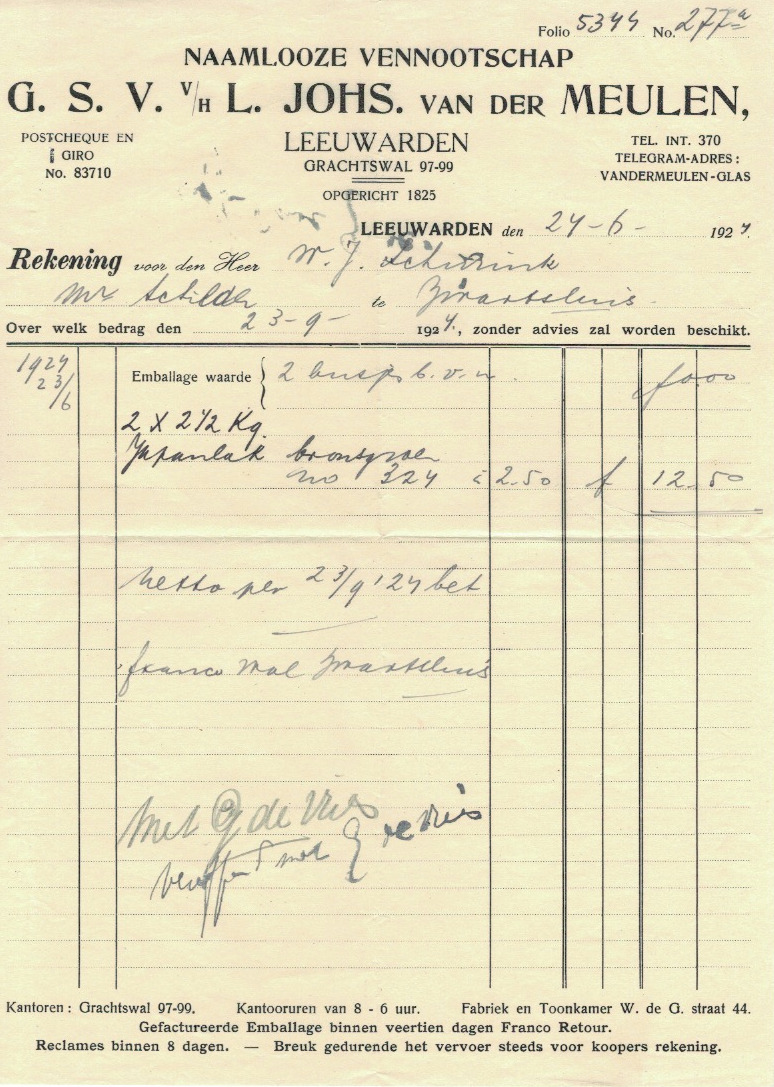 Folio 5344 No. 277a
NAAMLOOZE VENNOOTSCHAP
G. S. V. V/H L. JOHS. VAN DER MEULEN,
POSTCHEQUE EN
GIRO
No. 83710
LEEUWARDEN
GRACHTSWAL 97-99
OPGERICHT 1825
TEL. INT. 370
TELEGRAM-ADRES:
VANDERMEULEN-GLAS
LEEUWARDEN den 24-6- 1924.
Rekening voor den Heer W. J.
Mr Schilder te Zwartsluis.
Over welk bedrag den 23-9- 1924., zonder advies zal worden beschikt.
1924
23/6
Emballage waarde { 2 busjes b.v.n. f0.00
2 X 2 1/2 Kg.
Japanlak bronsgroen
no 324 à 2.50 f 12.50
Netto per 23/9 '24 bet
franco wal Zwartsluis
Met G de Vries
met G de Vries
Kantoren: Grachtswal 97-99. Kantooruren van 8 - 6 uur. Fabriek en Toonkamer W. de G. straat 44.
Gefactureerde Emballage binnen veertien dagen Franco Retour.
Reclames binnen 8 dagen. — Breuk gedurende het vervoer steeds voor koopers rekening.